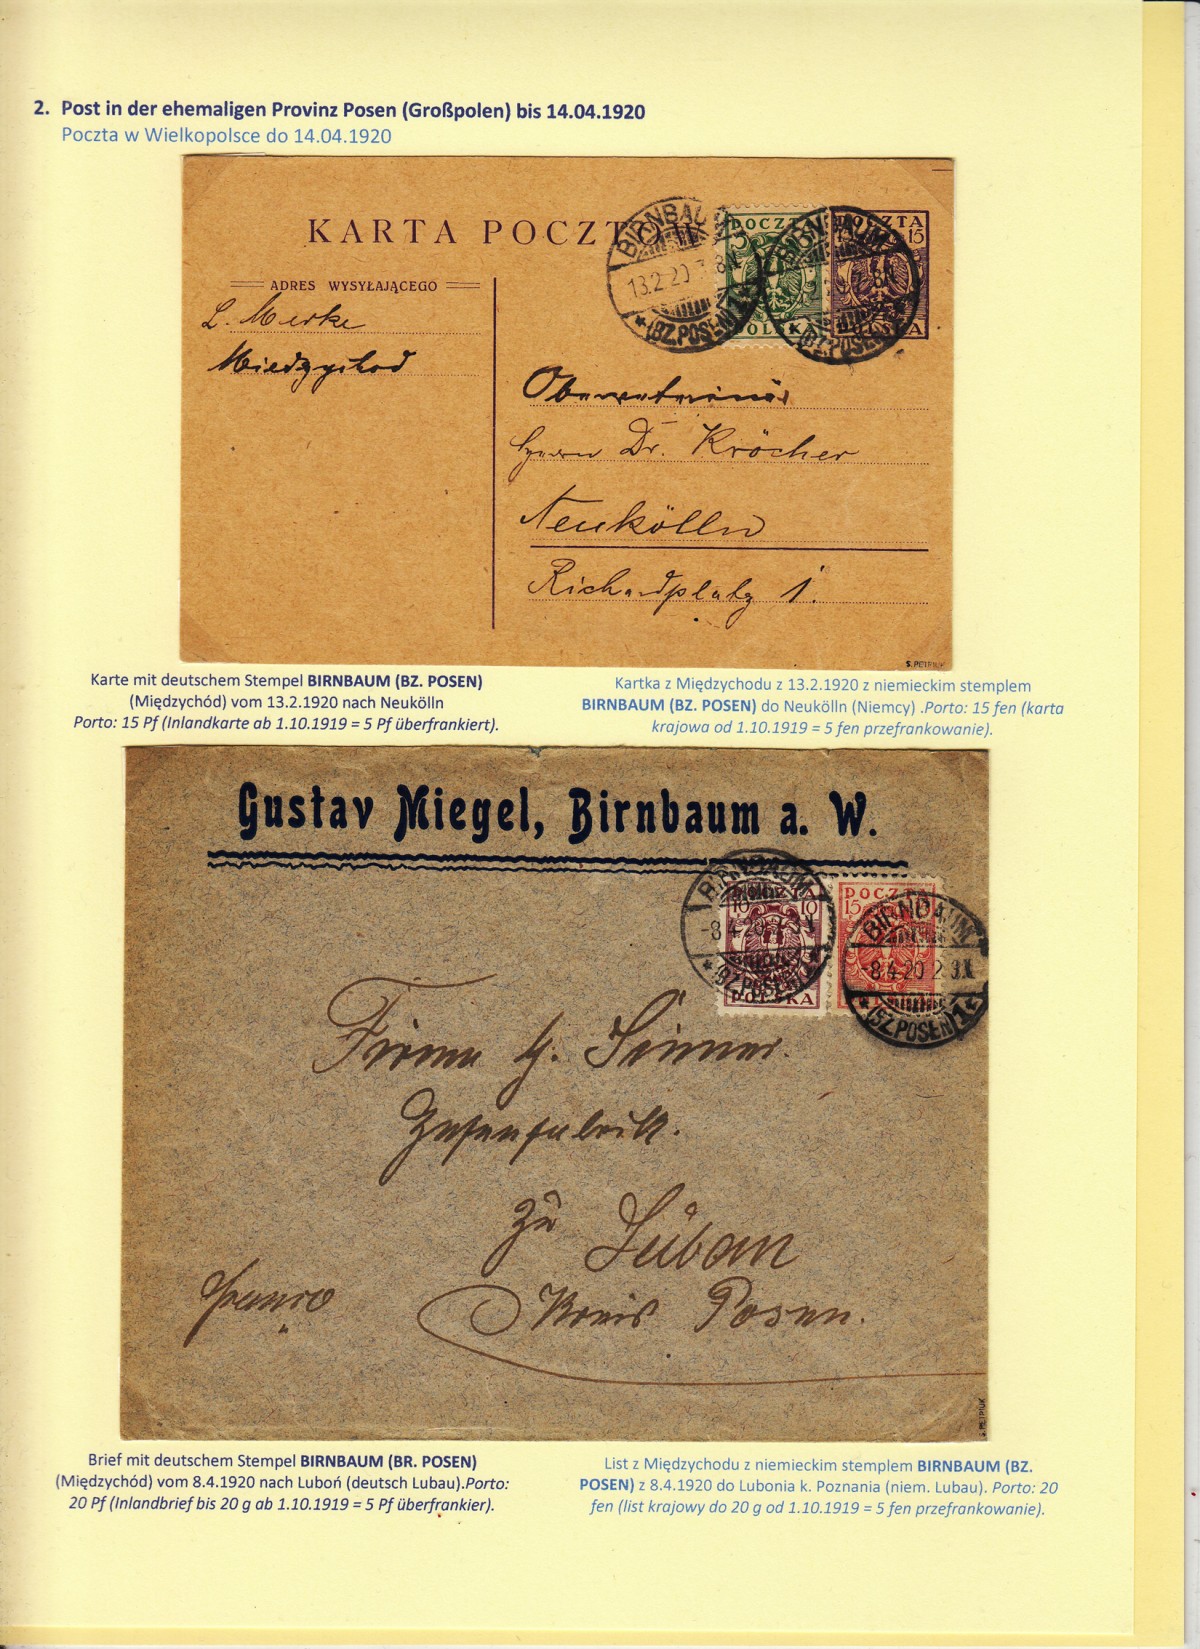 2. Post in der ehemaligen Provinz Posen (Großpolen) bis 14.04.1920
Poczta w Wielkopolsce do 14.04.1920
KARTA POCZTOWA
BIRNBAUM
13.2.20 7-8N
* (BZ.POSEN) 1
POCZTA
5
POLSKA
BIRNBAUM
* (BZ.POSEN)
POCZTA
15 15
POLSKA
ADRES WYSYŁAJĄCEGO
L. Merke
Miedzychod
Herrn Dr. Kröcher
Neukölln
Richardplatz 1.
S. PETRIUK
Karte mit deutschem Stempel BIRNBAUM (BZ. POSEN)
(Międzychód) vom 13.2.1920 nach Neukölln
Porto: 15 Pf (Inlandkarte ab 1.10.1919 = 5 Pf überfrankiert).
Kartka z Międzychodu z 13.2.1920 z niemieckim stemplem
BIRNBAUM (BZ. POSEN) do Neukölln (Niemcy) .Porto: 15 fen (karta
krajowa od 1.10.1919 = 5 fen przefrankowanie).
Gustav Miegel, Birnbaum a. W.
BIRNBAUM
-8.4.20
* (BZ.POSEN)
POCZTA
10 10
POLSKA
POCZTA
15
BIRNBAUM
-8.4.20 2-3N
* (BZ.POSEN) 1
Firma H. Sinner.
zu Luban
Kreis Posen.
franco
S. PETRIUK
Brief mit deutschem Stempel BIRNBAUM (BR. POSEN)
(Międzychód) vom 8.4.1920 nach Luboń (deutsch Lubau).Porto:
20 Pf (Inlandbrief bis 20 g ab 1.10.1919 = 5 Pf überfrankier).
List z Międzychodu z niemieckim stemplem BIRNBAUM (BZ.
POSEN) z 8.4.1920 do Lubonia k. Poznania (niem. Lubau). Porto: 20
fen (list krajowy do 20 g od 1.10.1919 = 5 fen przefrankowanie).